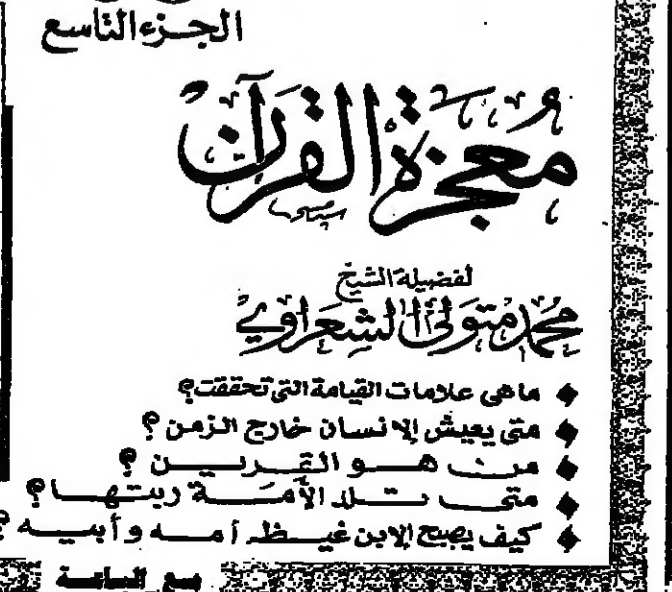 الجزء التاسع
معجزة القرآن
لفضيلة الشيخ
محمد متولي الشعراوي
ما هى علامات القيامة التى تحققت؟
متى يعيش الإنسان خارج الزمن؟
من هو القرين؟
متى تلد الأمة ربتها؟
كيف يصبح الابن غيظ أمه وأبيه؟
مع الباعة